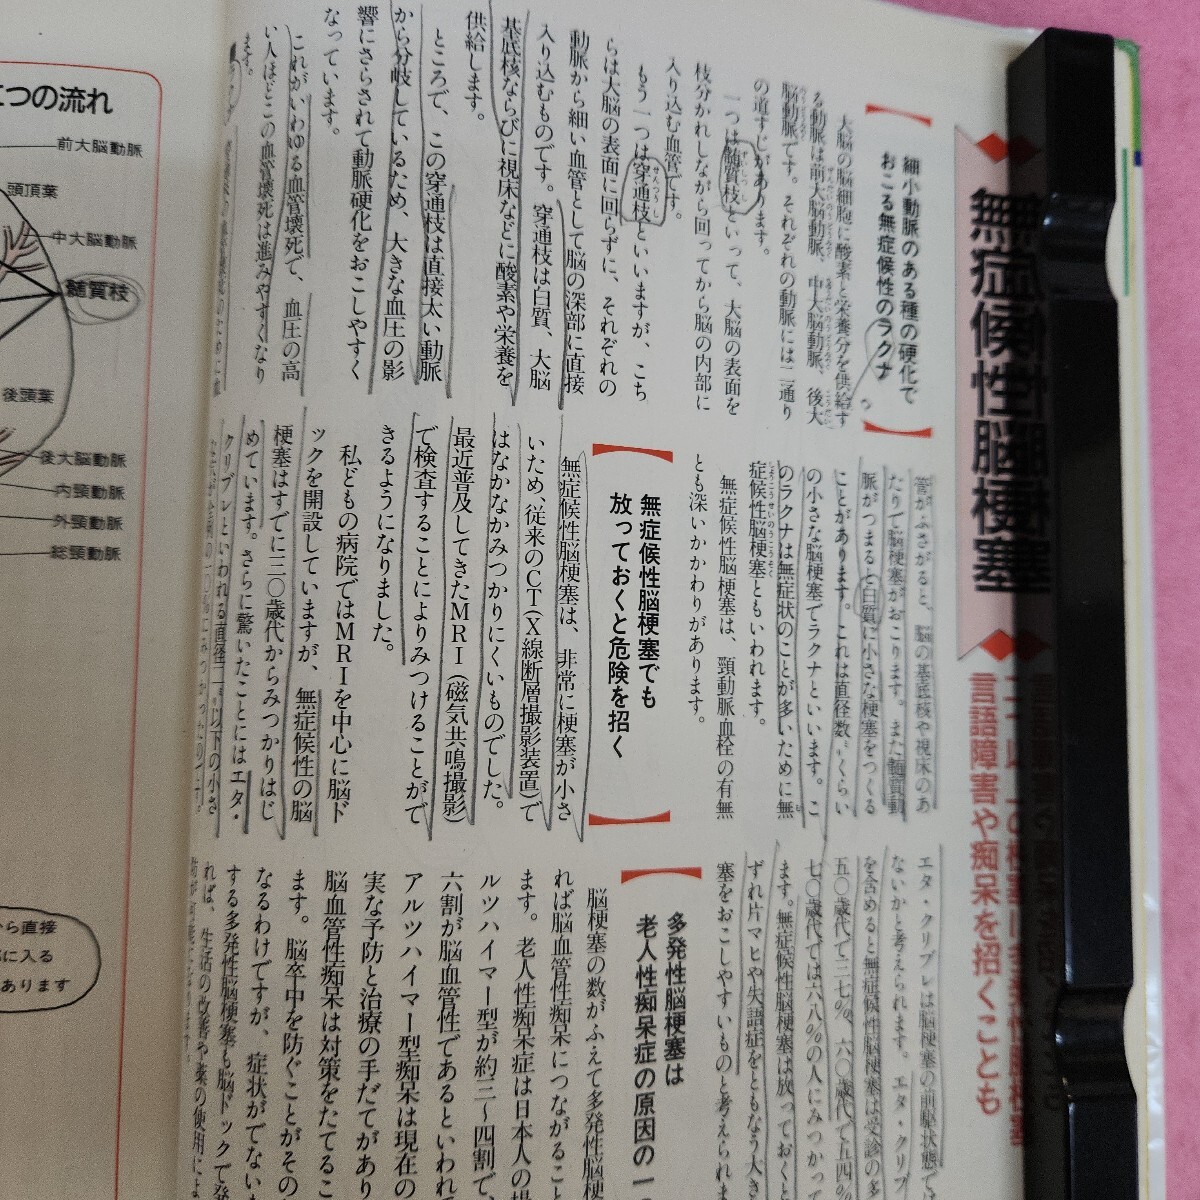 無症候性脳梗塞
言語障害や痴呆を招くことも
細小動脈のある種の硬化で
おこる無症候性のラクナ
大脳の脳細胞に酸素と栄養分を供給す
る動脈は前大脳動脈、中大脳動脈、後大
脳動脈です。それぞれの動脈には二通り
の道すじがあります。
一つは髄質枝といって、大脳の表面を
枝分かれしながら回ってから脳の内部に
入り込む血管です。
もう一つは穿通枝といいますが、こち
らは大脳の表面に回らずに、それぞれの
動脈から細い血管として脳の深部に直接
入り込むものです。穿通枝は白質、大脳
基底核ならびに視床などに酸素や栄養を
供給します。
ところで、この穿通枝は直接太い動脈
から分岐しているため、大きな血圧の影
響にさらされて動脈硬化をおこしやすく
なっています。
これがいわゆる血管壊死で、血圧の高
い人ほどこの血管壊死は進みやすくなり
ます。
管がふさがると、脳の基底核や視床のあ
たりで脳梗塞がおこります。また髄質動
脈がつまると白質に小さな梗塞をつくる
ことがあります。これは直径数ミリくらい
の小さな脳梗塞でラクナといいます。こ
のラクナは無症状のことが多いために無
症候性脳梗塞ともいわれます。
無症候性脳梗塞は、頸動脈血栓の有無
とも深いかかわりがあります。
無症候性脳梗塞でも
放っておくと危険を招く
無症候性脳梗塞は、非常に梗塞が小さ
いため、従来のCT(X線断層撮影装置)で
はなかなかみつかりにくいものでした。
最近普及してきたMRI(磁気共鳴撮影)
で検査することによりみつけることがで
きるようになりました。
私どもの病院ではMRIを中心に脳ド
ックを開設していますが、無症候性の脳
梗塞はすでに三〇歳代からみつかりはじ
めています。さらに驚いたことにはエタ・
クリブレといわれる直径二ミリ以下の小さ
エタ・クリブレは脳梗塞の前駆状態では
ないかと考えられます。エタ・クリブ
を含めると無症候性脳梗塞は受診の多
五〇歳代で三七%、六〇歳代で五四%
七〇歳代では六八%の人にみつかって
ます。無症候性脳梗塞は放っておくと
ずれ片マヒや失語症をともなう大き
塞をおこしやすいものと考えられま
多発性脳梗塞は
老人性痴呆症の原因の一
脳梗塞の数がふえて多発性脳梗
れば脳血管性痴呆につながること
ます。老人性痴呆症は日本人の場
ルツハイマー型が約三〜四割で、
六割が脳血管性であるといわれて
アルツハイマー型痴呆は現在の
実な予防と治療の手だてがあり
脳血管性痴呆は対策をたてるこ
ます。脳卒中を防ぐことがその
なるわけですが、症状がでない
する多発性脳梗塞も脳ドックで発
れば、生活の改善や薬の使用によ
つの流れ
前大脳動脈
頭頂葉
中大脳動脈
髄質枝
後頭葉
後大脳動脈
内頸動脈
外頸動脈
総頸動脈
から直接
に入る
あります